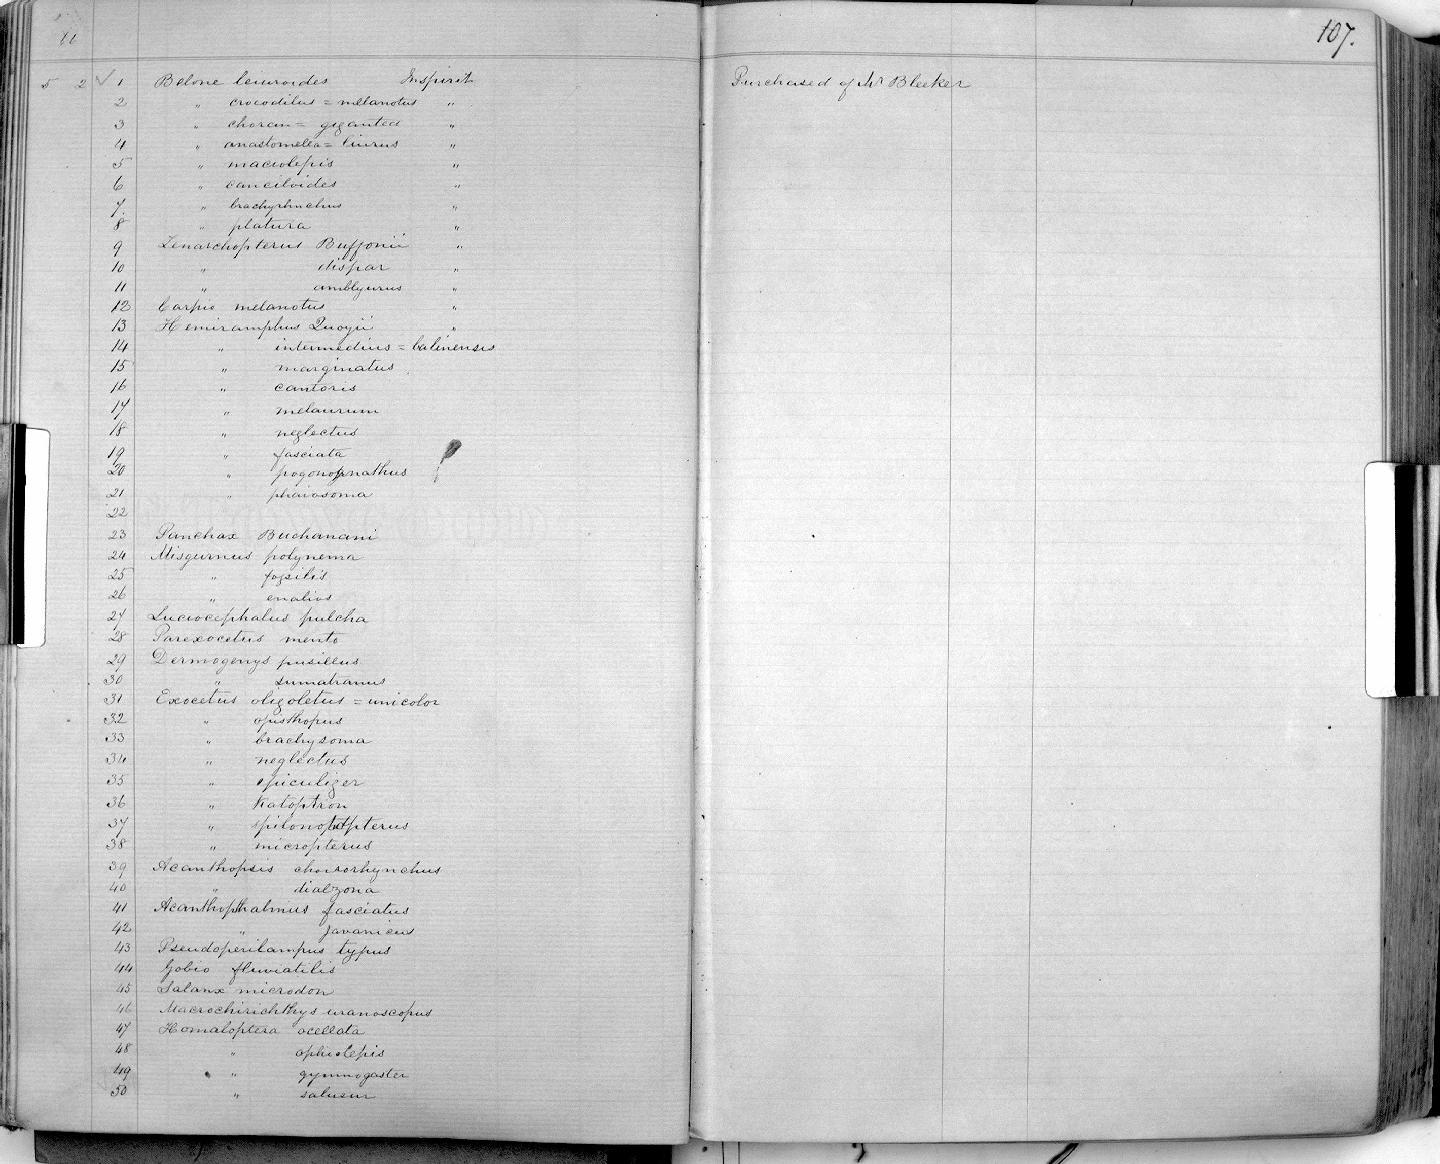 11 107.
5 2 ✓ 1 Belone leiuroides In spirit Purchased of Mr Bleeker
2 " crocodilus = melanotus "
3 " choram = gigantea "
4 " anastomella = liurus "
5 " macrolepis "
6 " canciloides "
7 " brachyrhnchus "
8 " platura "
9 Zenarchopterus Buffonii "
10 " dispar "
11 " amblyurus "
12 Carpio melanotus "
13 Hemiramphus Quoyii "
14 " intermedius = balinensis
15 " marginatus
16 " cantoris
17 " melanurum
18 " neglectus
19 " fasciata
20 " pogonognathus
21 " phaiosoma
22
23 Panchax Buchanani
24 Misgurnus polynema
25 " fossilis
26 " enalios
27 Luciocephalus pulcha
28 Parexocetus mento
29 Dermogenys pusillus
30 " sumatranus
31 Exocetus oligoletus = unicolor
32 " opisthopus
33 " brachysoma
34 " neglectus
35 " spiculiger
36 " Katoptron
37 " spilonopterus
38 " micropterus
39 Acanthopsis choirorhynchus
40 " dialzona
41 Acanthopthalmus fasciatus
42 " javanicus
43 Pseudoperilampus typus
44 Gobio fluviatilis
45 Salanx microdon
46 Macrochirichthys uranoscopus
47 Homaloptera ocellata
48 " ophiolepis
49 " gymnogaster
50 " salusur